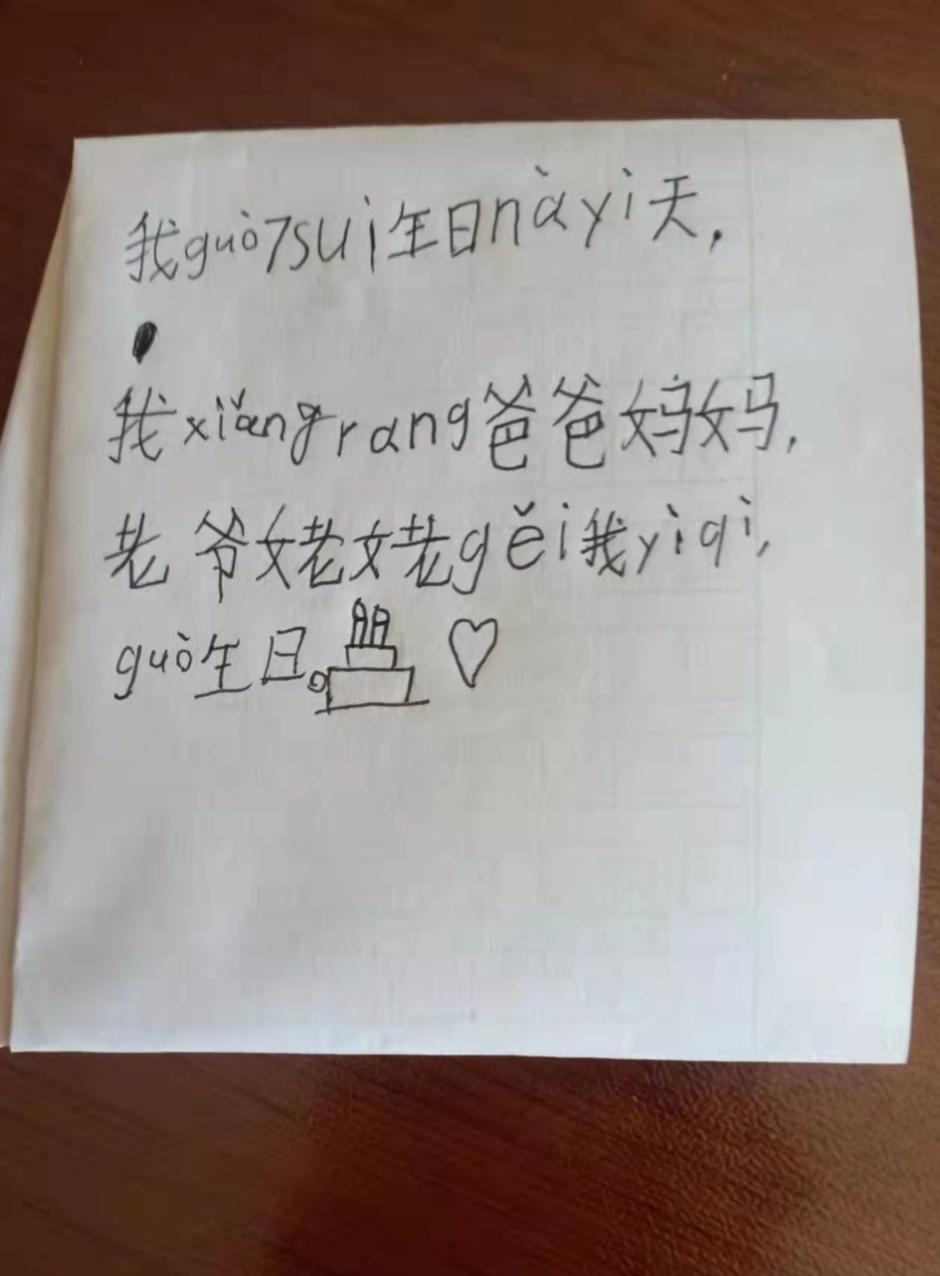 我guò7sui生日nàyì天，
我xiǎngrang爸爸妈妈，
老爷姥姥gěi我yìqì，
guò生日。